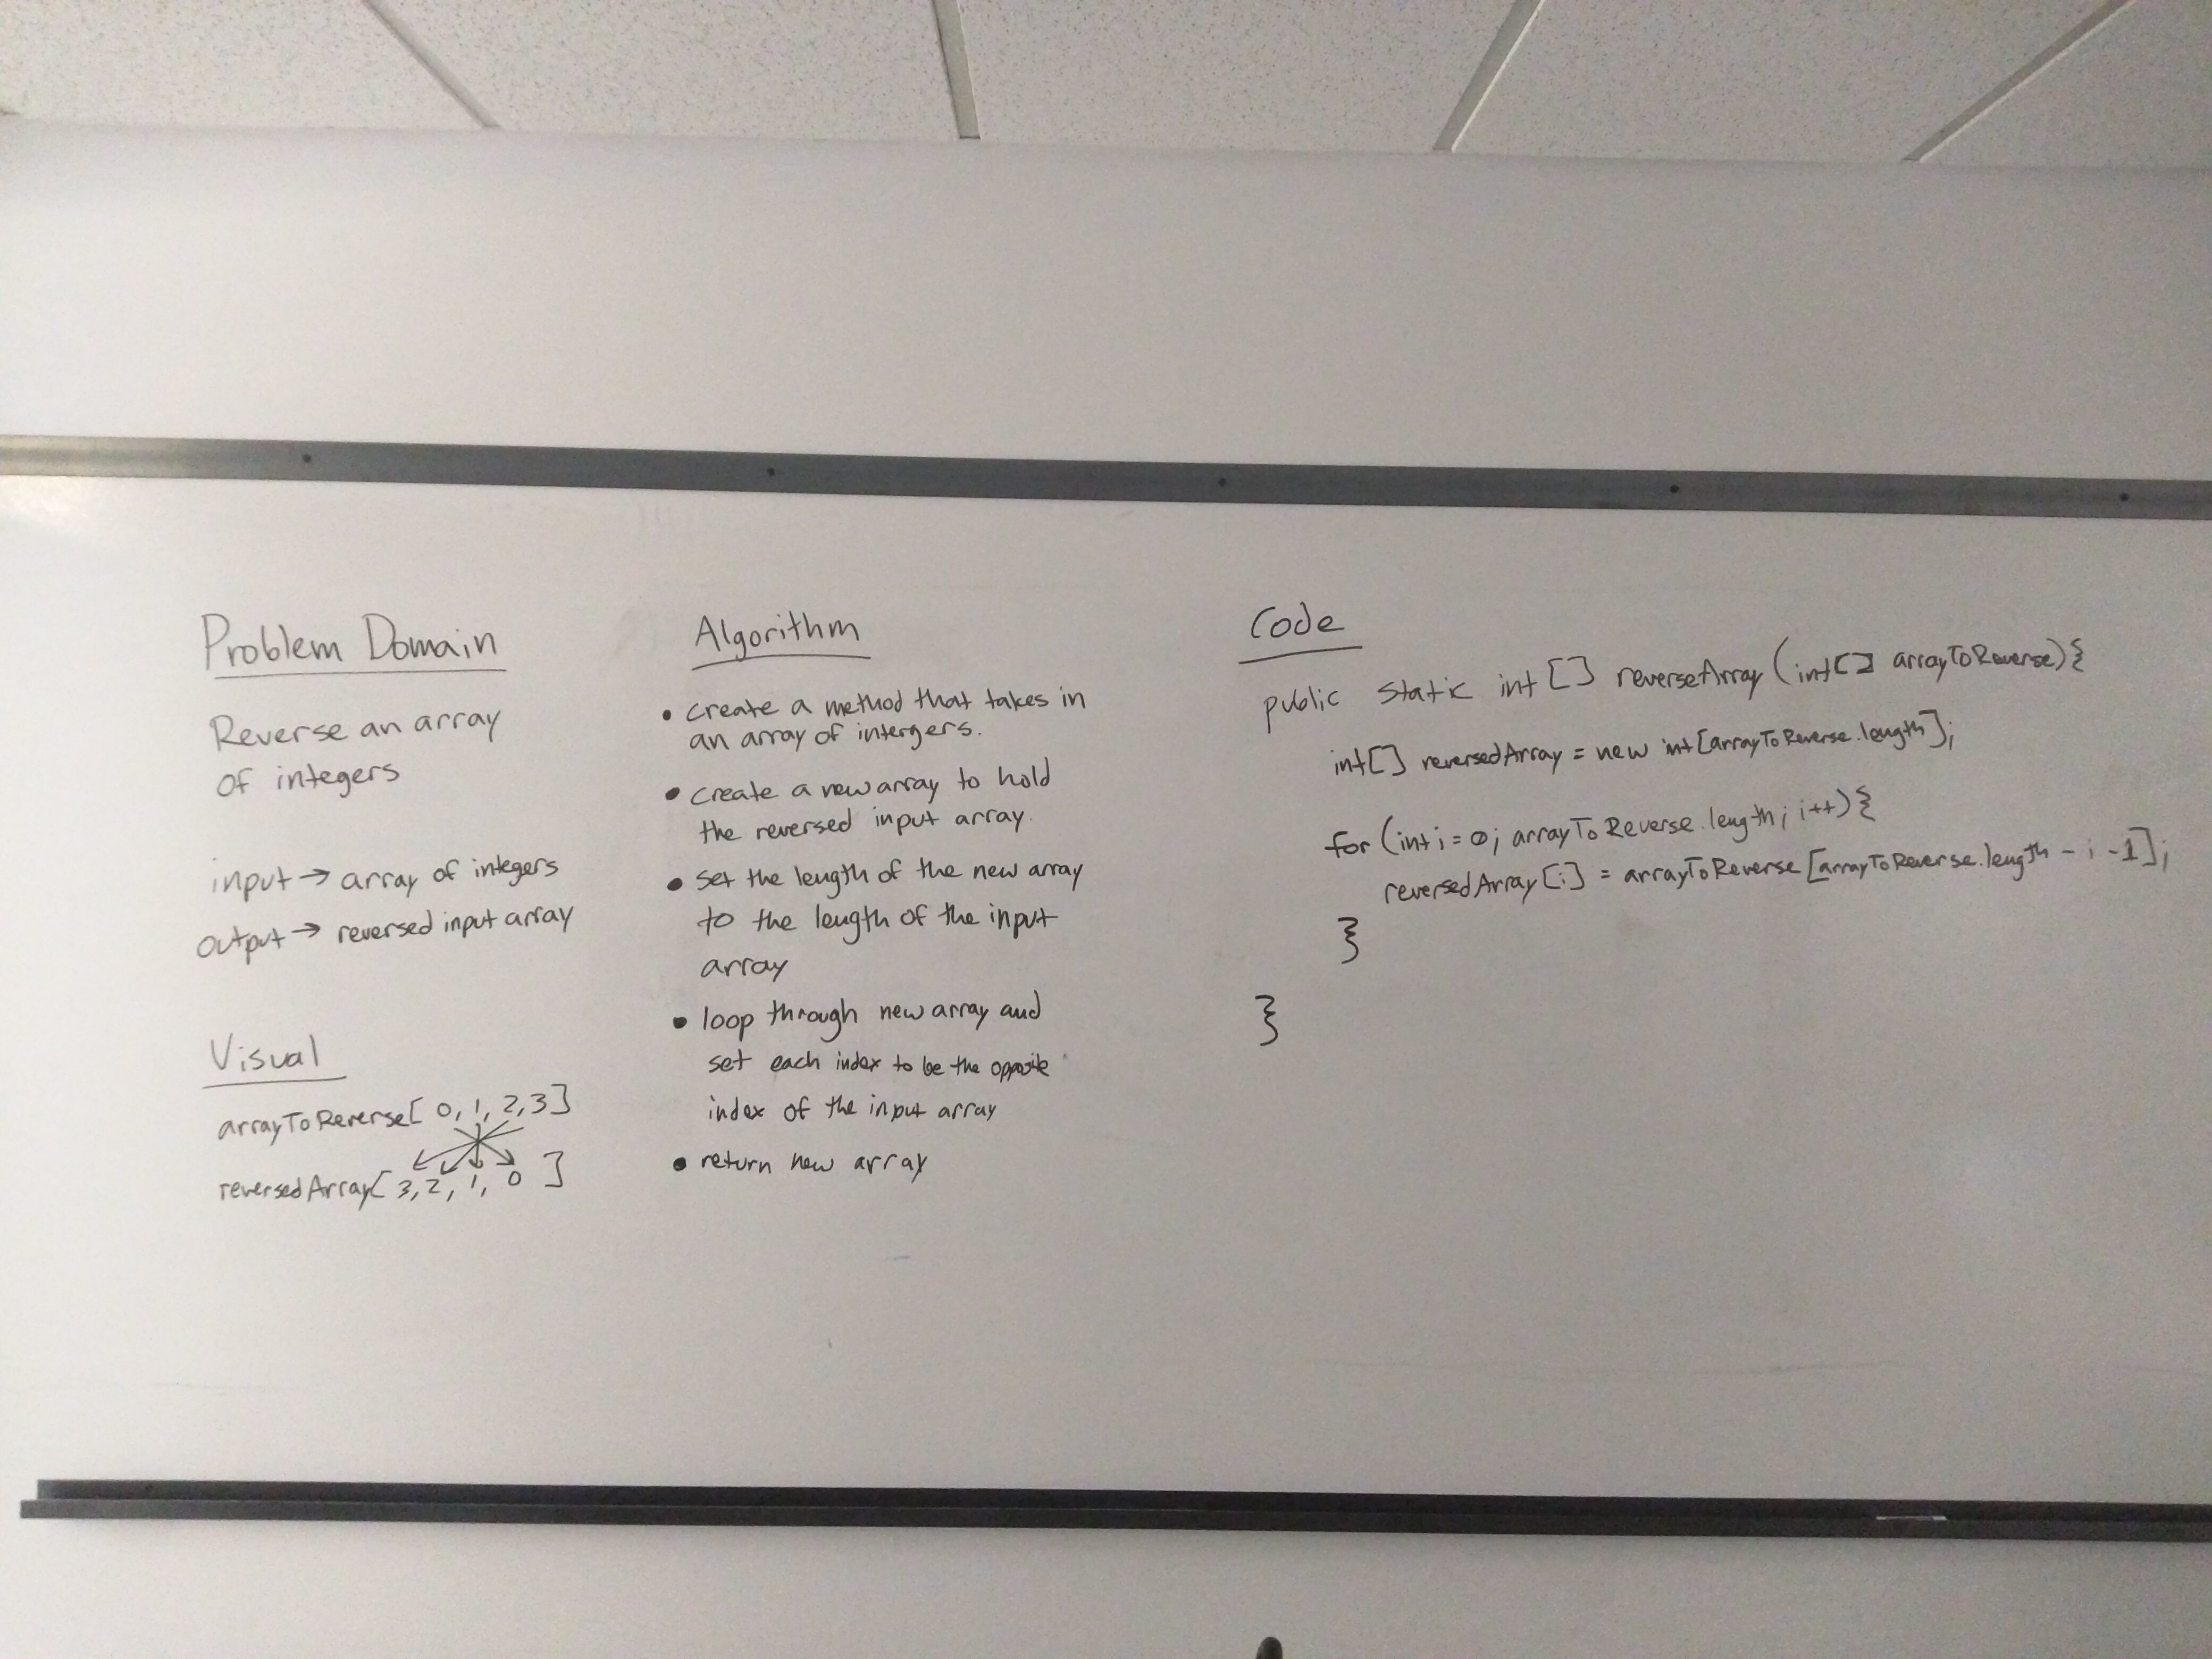 Problem Domain
Reverse an array
of integers
input → array of integers
output → reversed input array
Visual
arrayToReverse[ 0, 1, 2, 3 ]
reversedArray[ 3, 2, 1, 0 ]
Algorithm
• create a method that takes in
an array of intergers.
• create a new array to hold
the reversed input array.
• set the length of the new array
to the length of the input
array
• loop through new array and
set each index to be the opposite
index of the input array
• return new array
Code
public static int [] reverseArray (int[] arrayToReverse){
int[] reversedArray = new int[arrayToReverse.length];
for (int i = 0; arrayToReverse.length; i++){
reversedArray[i] = arrayToReverse[arrayToReverse.length - i - 1];
}
}